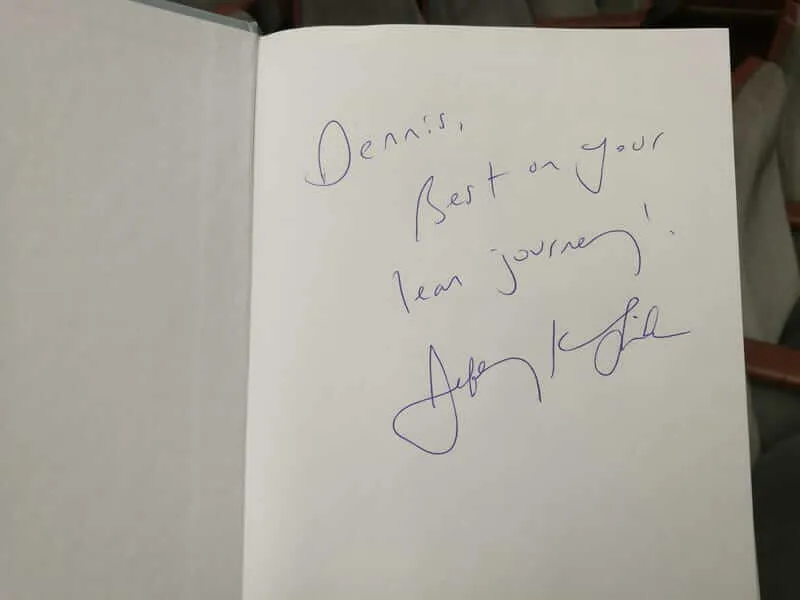 Dennis,
Best on your
lean journey!
Jeffrey K Liker